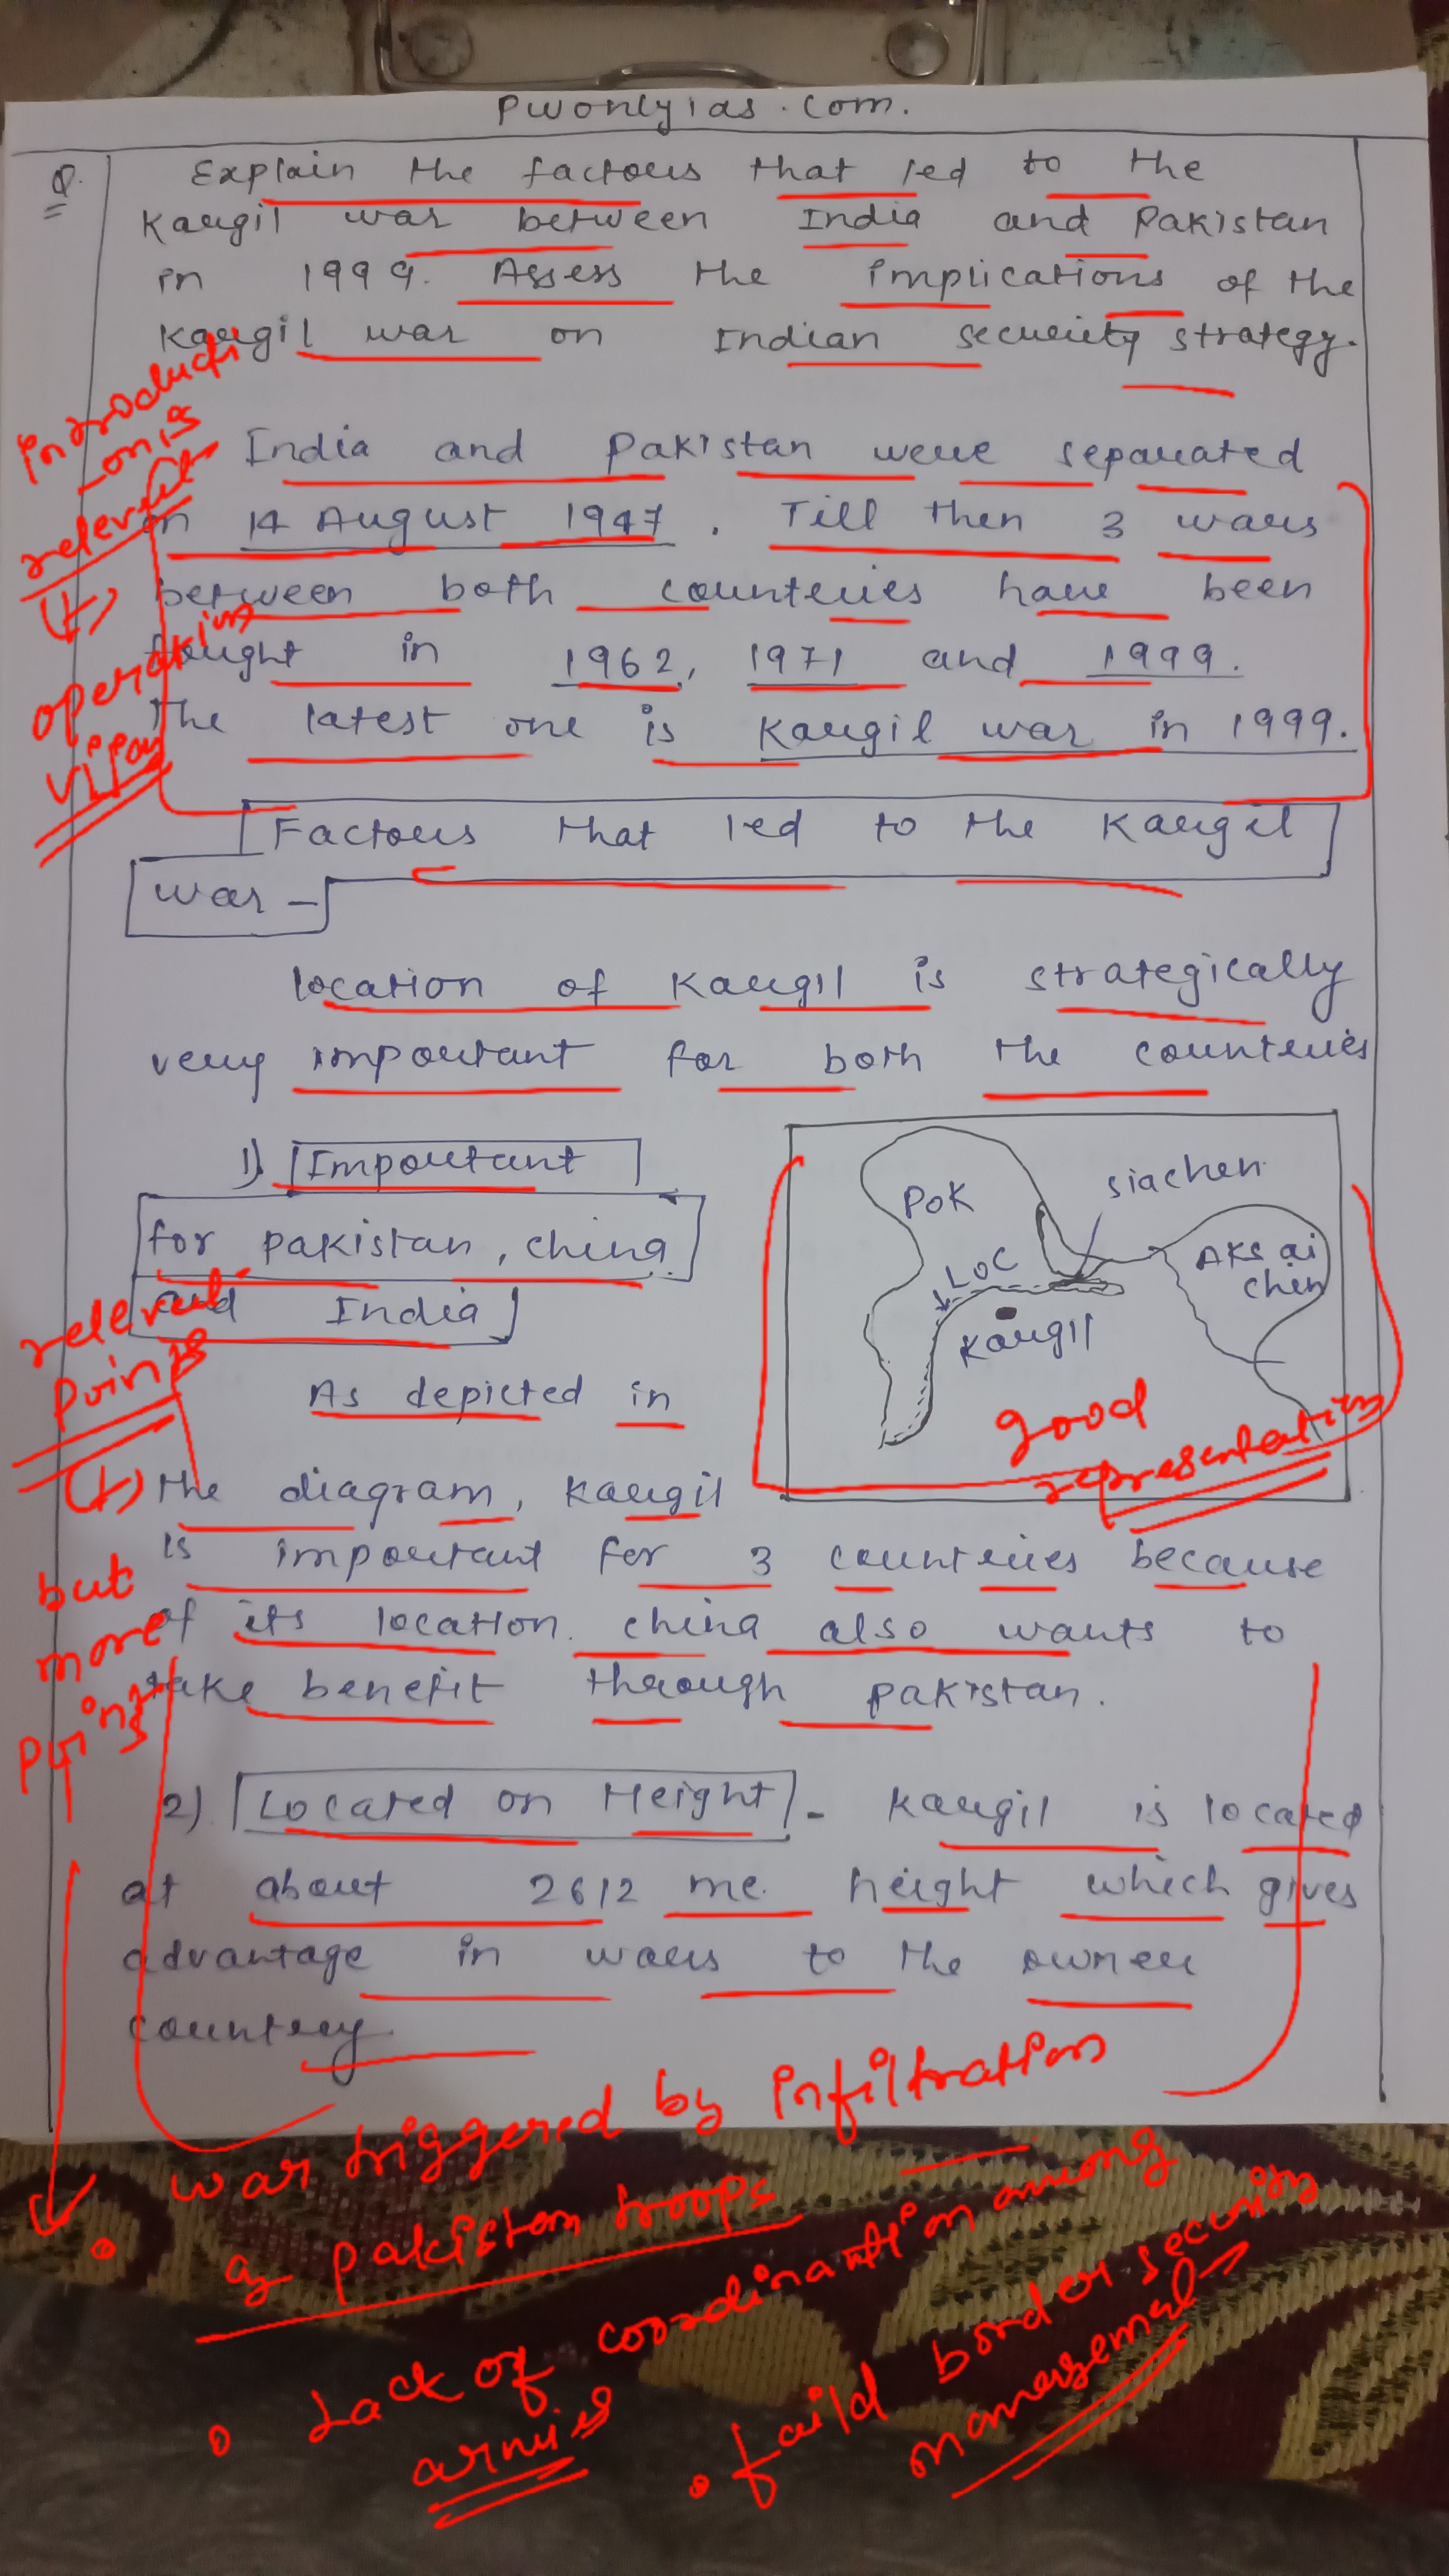 pwonlyias.com.
Q. Explain the factors that led to the
Kargil war between India and Pakistan
in 1999. Assess the implications of the
Kargil war on Indian security strategy.
Introducti
-on is
relevant
(+)
operation
India and Pakistan were separated
in 14 August 1947. Till then 3 wars
between both countries have been
fought in 1962, 1971 and 1999.
The latest one is Kargil war in 1999.
Factors that led to the Kargil
war -
location of Kargil is strategically
very important for both the countries
1) Important
for pakistan, china
and India
As depicted in
POK
siachen
AKsai
chin
LOC
Kargil
good
representation
relevent
points
(+)
but
more
points
the diagram, Kargil
is important for 3 countries because
of its location. china also wants to
take benefit through pakistan.
2) Located on Height - Kargil is located
at about 2612 me. height which gives
advantage in wars to the owner
country.
• war triggered by infiltration
by pakistan troops
• Lack of coordination among
armies
• faild border security